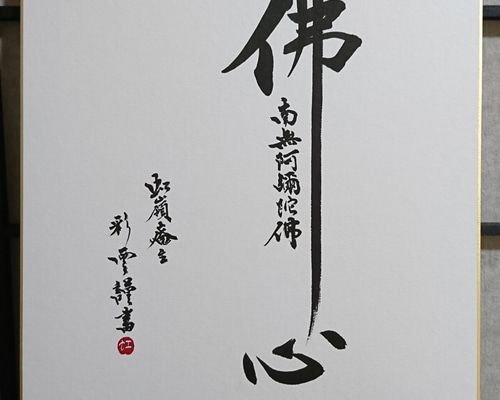 佛心
南無阿彌陀佛
虹嶺庵主
彩雲謹書
虹